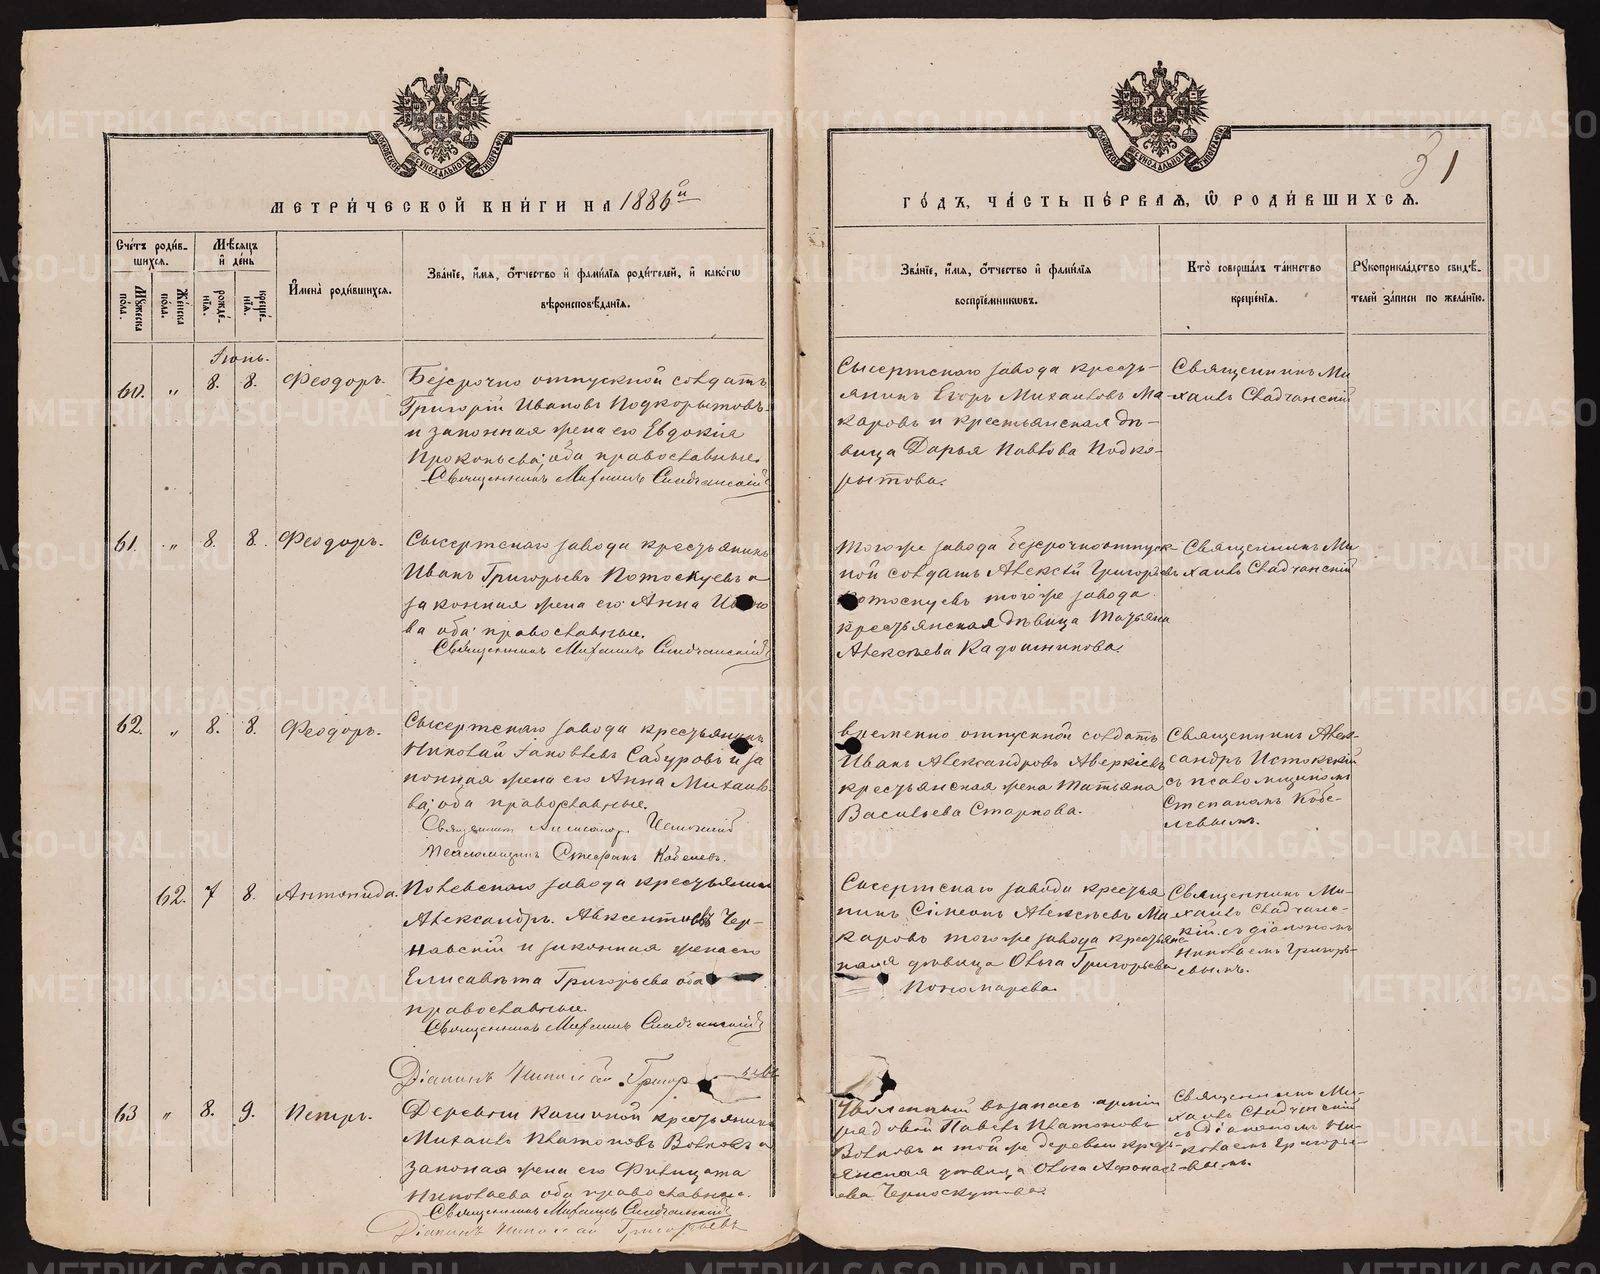 31
МЕТРИ́ЧЕСКОЙ КНИ́ГИ НА 1886й
ГО́ДЪ, ЧА́СТЬ ПЕ́РВАѦ, Ѿ РОДИ́ВШИХСѦ.
Сче́тъ роди́в-
шихсѧ.
Мꙋжеска по́ла.
Же́нска по́ла.
Мѣ́сѧцъ и́ де́нь
рожде́-
нїѧ.
креще́-
нїѧ.
И́мена̀ роди́вшихсѧ.
Зва́нїе, и́мѧ, о́тчество и́ фами́лїѧ роди́телей, и́ како́гѡ
вѣроисповѣ́данїѧ.
Зва́нїе, и́мѧ, о́тчество и́ фами́лїѧ
воспрїе́мникѡвъ.
Кто̀ соверша́лъ та́инство
креще́нїѧ.
Рꙋкоприкла́дство свидѣ́-
телей за́писи по жела́нїю.
Іюнь.
60. " 8. 8. Феодоръ.
Безсрочно отпускной солдатъ
Григорій Ивановъ Подкорытовъ
и законная жена его Евдокія
Прокопьева, оба православные.
Священникъ Михаилъ Сладчанскій
Сысертскаго завода кресть-
янинъ Егоръ Михаиловъ Ма-
каровъ и крестьянская дѣ-
вица Дарья Павлова Подко-
рытова.
Священникъ Ми
хаилъ Сладчанскій
61. " 8. 8. Феодоръ.
Сысертскаго завода крестьянинъ
Иванъ Григорьевъ Потоскуевъ и
законная жена его Анна Ивано
ва оба православные.
Священникъ Михаилъ Сладчанскій
Тогоже завода безсрочноотпуск
ной солдатъ Алексѣй Григорьевъ
Потоскуевъ тогоже завода
крестьянская дѣвица Татьяна
Алексѣева Кадошникова
Священникъ Ми
хаилъ Сладчанскій
62. " 8. 8. Феодоръ.
Сысертскаго завода крестьянинъ
Николай Іаковлевъ Сабуровъ и за
конная жена его Анна Михаило
ва; оба православные.
Священникъ Александръ Истокскій
Псаломщикъ Стефанъ Кобелевъ.
Временно отпускной солдатъ
Иванъ Александровъ Аверкіевъ
крестьянская жена Татьяна
Васильева Старкова.
Священникъ Алек-
сандръ Истокскій
съ псаломщикомъ
Степаномъ Кобе-
левымъ.
62. 7 8. Антонида.
Полевскаго завода крестьянинъ
Александръ Авксентьевъ Чер-
навскій и законная жена его
Елисавета Григорьева оба
православные.
Священникъ Михаилъ Сладчанскій
Діаконъ Николай Григорьевъ
Сысертскаго завода крестья
нинъ Сімеонъ Алексѣевъ Ма
каровъ тогоже завода крестьянс
кая дѣвица Ольга Григорьева
Пономарева.
Священникъ Ми-
хаилъ Сладчанс-
кій съ діакономъ
Николаемъ Григорь-
евымъ.
63 " 8. 9. Петръ.
Деревни Кашиной крестьянинъ
Михаилъ Платоновъ Волковъ и
законая жена его Фивицата
Николаева оба православные.
Священникъ Михаилъ Сладчанскій
Діаконъ Николай Григорьевъ
въ запасъ арміи
рядовой Павелъ Платоновъ
Волковъ и той же деревни кресть-
янская дѣвица Ольга Афонась-
ева Черноскутова.
Священникъ Ми-
хаилъ Сладчанскій
съ Діакономъ Ни-
колаемъ Григорье-
вымъ.
METRIKI.GASO-URAL.RU